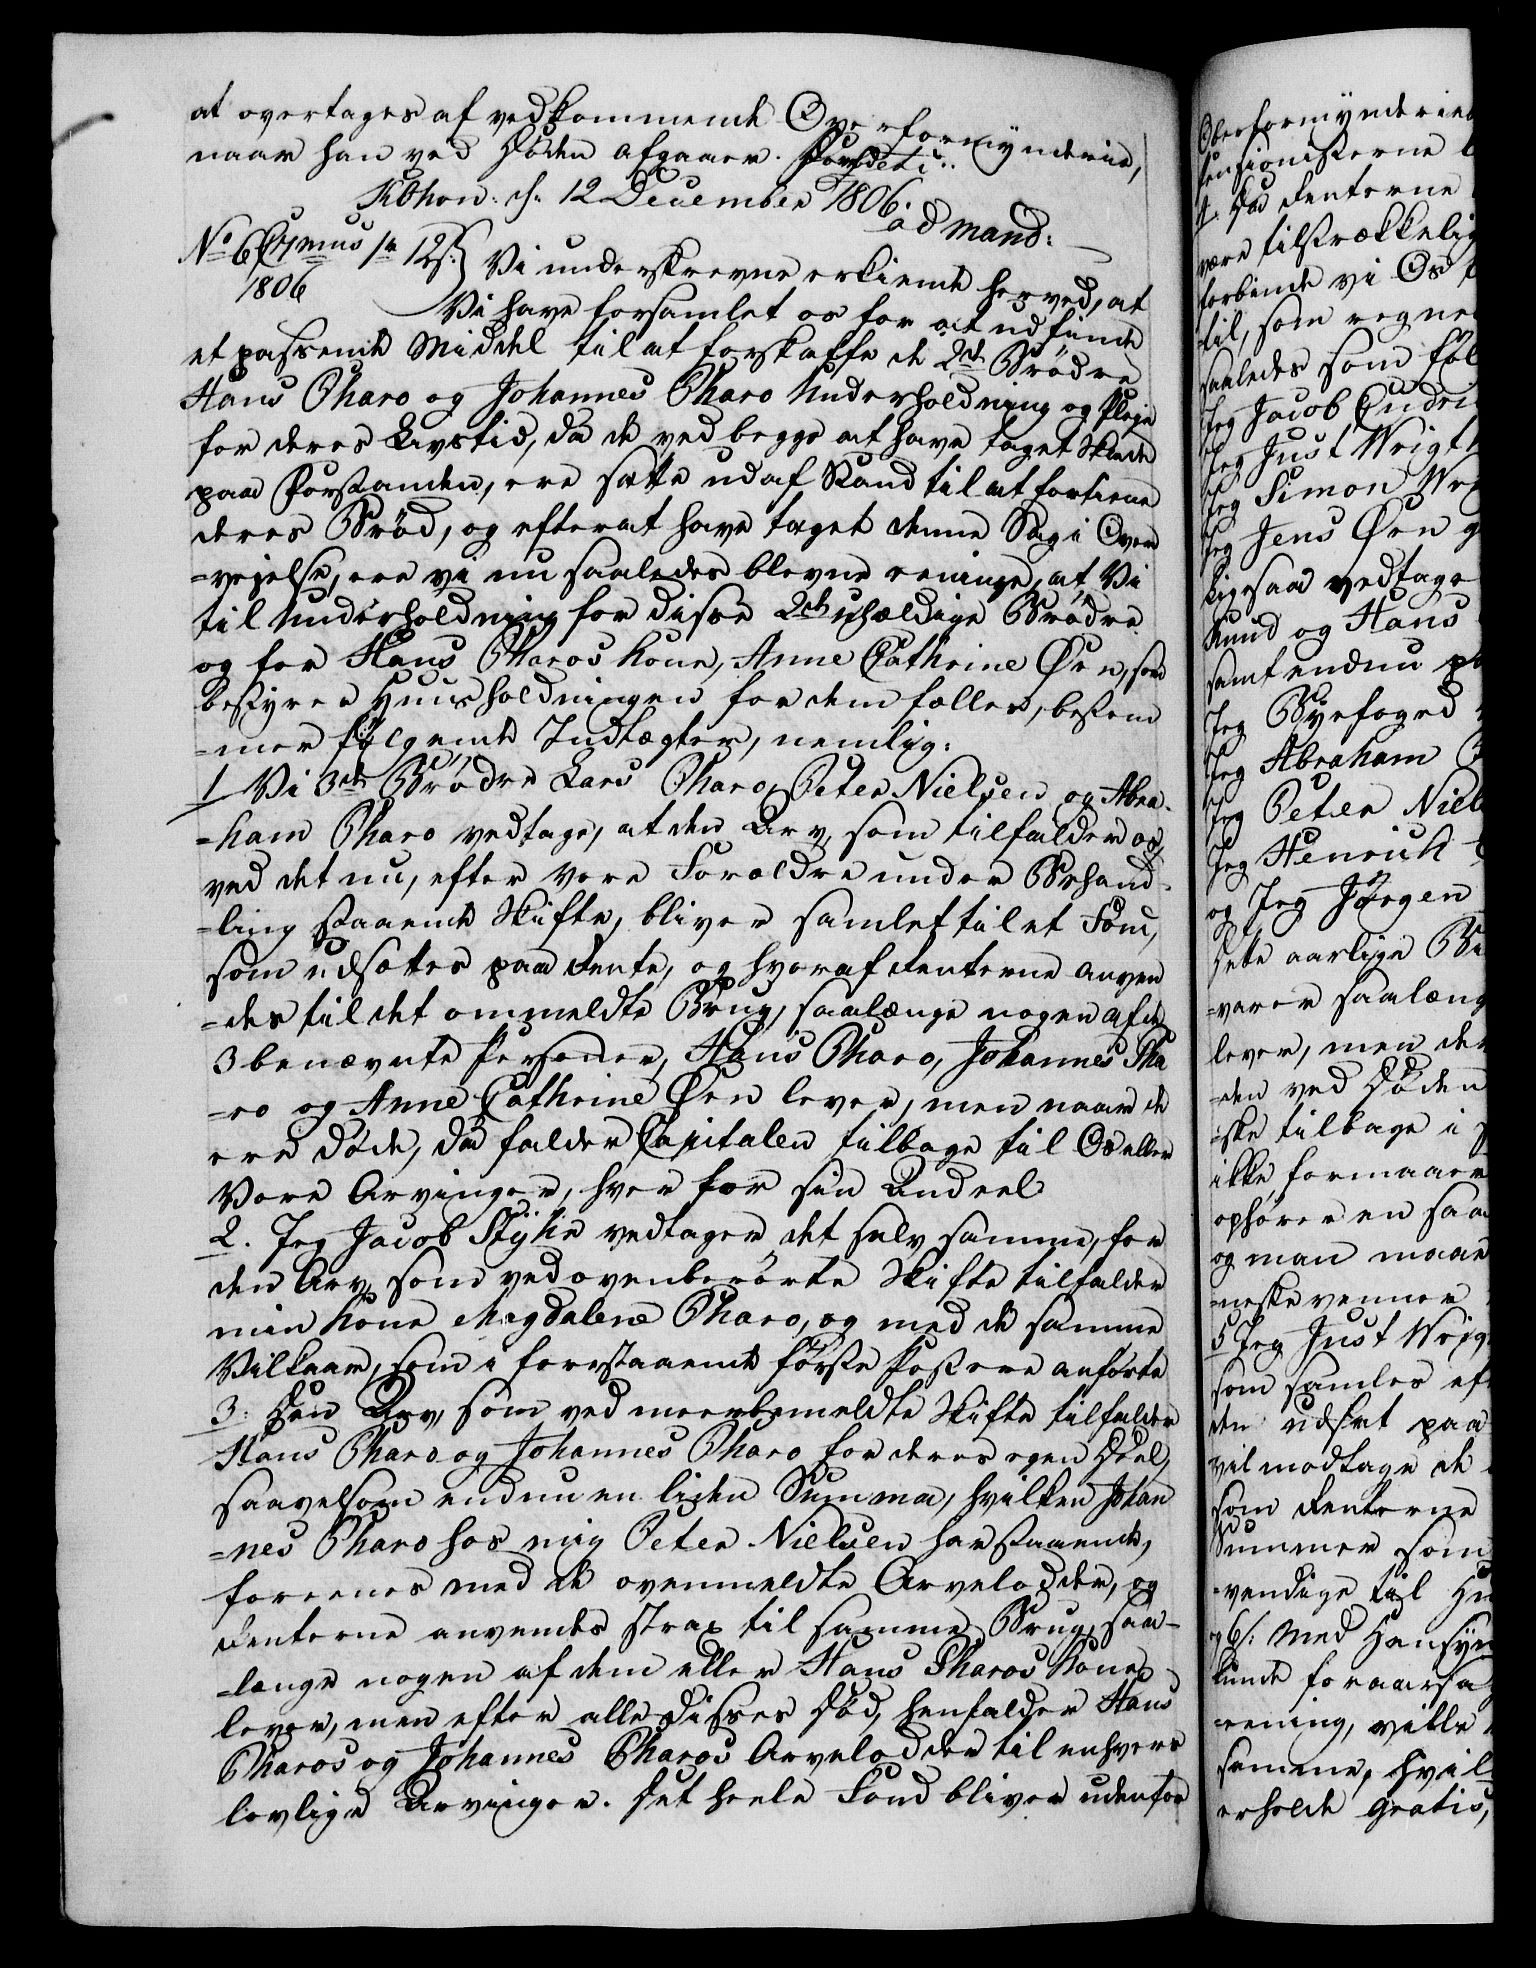 at overtages af vedkommende Overformynderie,
naar han ved Døden afgaaer. 
Kbhvn: d: 12 December 1806.
ad mand:
No 6 12 s: Vi underskrevne erkiende herved, at
1806
Vi have forsamlet os for at udfinde
et passende Middel til at forskaffe de 2de Brødre
Hans Pharo og Johannes Pharo Underholdning og Pleje
for deres Livstid, da de ved begge at have taget Skade
paa Forstanden, ere satte ud af Stand til at fortiene
deres Brød, og efterat have taget denne Sag i Over
=vejelse, ere vi nu saaledes blevne eenige, at Vi
til Underholdning for disse 2de uheldige Brødre
og for Hans Pharos Kone, Anne Cathrine Ørn, som
bestyrer Huusholdningen for dem fælles, bestem
=mer følgende Indtægter, nemlig:
1 Vi 3de Brødre Lars Pharo, Peter Nielsen og Abra-
=ham Pharo vedtage, at den Arv, som tilfalder os,
ved det nu, efter vore Forældre under Behand-
=ling staaende Skifte, bliver samlet til et Fond,
som udsættes paa Rente, og hvoraf Renterne anven
=des til det ommeldte Brug, saalænge nogen af de
3 benævnte Personer, Hans Pharo, Johannes Pha
=ro og Anne Cathrine Ørn lever, men naar de
ere døde, da falder Capitalen tilbage til Os eller
Vore Arvinger, hver for sin Andeel
2. Jeg Jacob Styhr vedtager det selv samme, for
den Arv, som ved ovenberørte Skifte tilfalder
min Kone Magdalene Pharo, og med de samme
Vilkaar, som i forestaaende første Post ere anførte
3. Den Arv, som ved meerbemeldte Skifte tilfalder
Hans Pharo og Johannes Pharo for deres egen Deel,
saavelsom endnu en liden Summa, hvilken Johan
=nes Pharo hos mig Peter Nielsen har staaende,
foreenes med de ovenmeldte Arvelodder, og
Renterne anvendes strax til samme Brug, saa-
=længe nogen af dem eller Hans Pharos Kone
lever, men efter alle disses Død, henfalder Hans
Pharos og Johannes Pharos Arvelodder til enhvers
lovlige Arvinger. Det heele Fond bliver udenfor
Overformynderiet
4. Da Renterne
være tilstrækkelig
forbinde vi Os
til, som regne
saaledes som føl
Jeg Jacob
Jeg Just Wrigt
Jeg Simon
Jeg Jens Ørn
ligesaa vedtage
Knud og Hans
samt endnu
Jeg Byefoged
Jeg Abraham
Jeg Peter Niel
Jeg Henrich
og Jeg Jørgen
Dette aarlige
=varer saalæng
lever, men
=den ved Døden
=ske tilbage i
ikke formaaer
ophører en saa
og man maae
=neske venner
5 Jeg Just Wrig
som samles eft
den udsat paa
vil modtage de
som Renterne
Summer som
=vendige til
og 6. Med Hensyn
kunde foraarsa
=rening, ville
samme, hvil
erholde gratis,